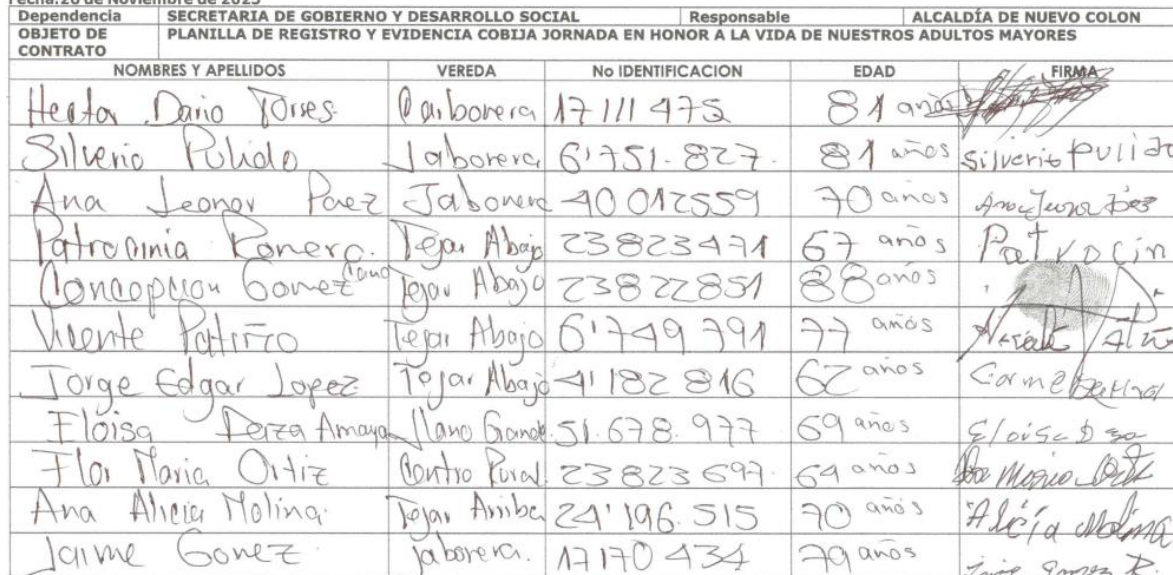 Fecha:26 de Noviembre de 2025
Dependencia SECRETARIA DE GOBIERNO Y DESARROLLO SOCIAL Responsable ALCALDÍA DE NUEVO COLON
OBJETO DE CONTRATO PLANILLA DE REGISTRO Y EVIDENCIA COBIJA JORNADA EN HONOR A LA VIDA DE NUESTROS ADULTOS MAYORES
NOMBRES Y APELLIDOS VEREDA No IDENTIFICACION EDAD FIRMA
Hector Dario Torres Carbonera 17 111 475 81 años
Silverio Pulido Jabonera 6'751.827 81 años Silverio Pulido
Ana Leonor Paez Jabonera 40 012559 70 años
Patrocinia Romero. Tejar Abajo 23823471 67 años Patrocin
Concepcion Gomez Cano Tejar Abajo 23822851 88 años
Vicente Patiño Tejar Abajo 6'749 791 77 años
Jorge Edgar Lopez Tejar Abajo 4'182 816 62 años
Eloisa Deaza Amaya Llano Grande 51.678.977 69 años Eloisa
Flor Maria Ortiz Centro Rural 23 823 697 64 años Maria Ortiz
Ana Alicia Molina Tejar Arriba 24'196.515 70 años Alicia Molina
Jaime Gomez Jabonera. 17170434 79 años